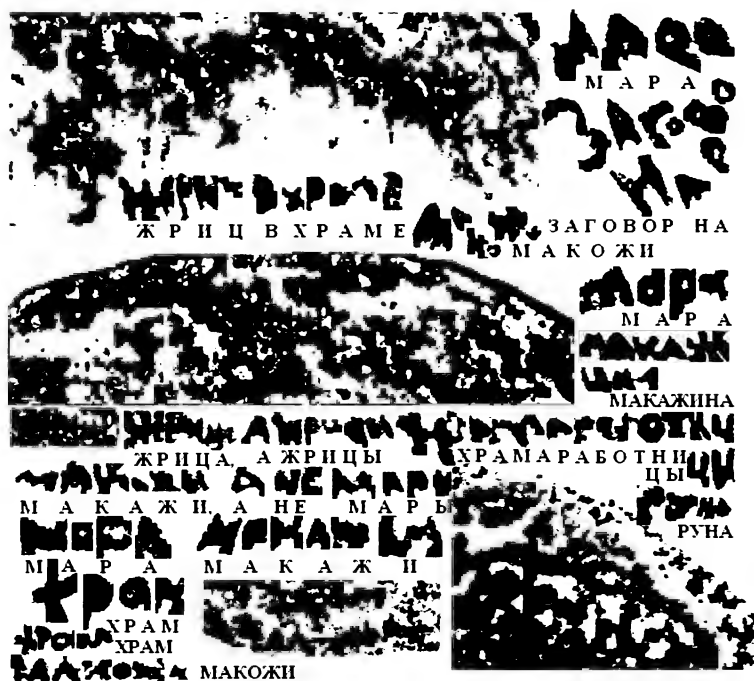 МАРА
ЖРИЦ В ХРАМЕ
ЗАГОВОР НА
МАКОЖИ
МАРА
МАКАЖИНА
ЖРИЦА, А ЖРИЦЫ
ХРАМА РАБОТНИ
ЦЫ
МАКАЖИ, А НЕ МАРЫ
РУНА
МАРА
МАКАЖИ
ХРАМ
ХРАМ
МАКОЖИ